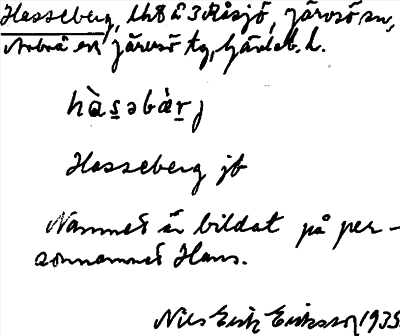 Hasseberg, lht å 3 Råsjö, Järvsö sn,
Arbrå och Järvsö tg, Gävleb. l.
hàs̱əbàṟj
Hasseberg jb
Namnet är bildat på per-
sonnamnet Hans.
Nils Erik Eriksson 1935